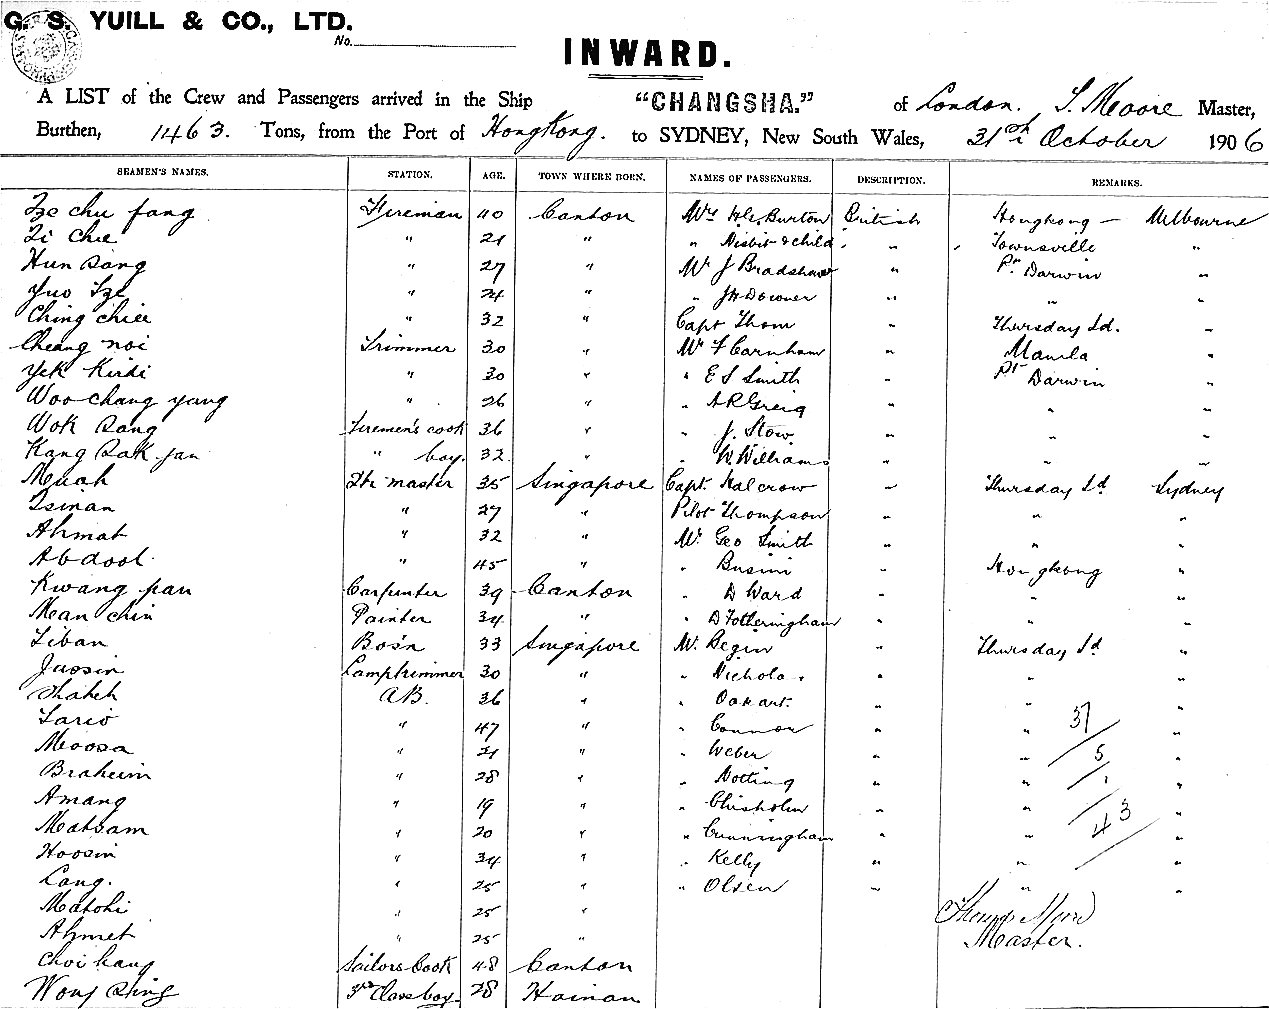 G. S. YUILL & CO., LTD.
No.
INWARD.
A LIST of the Crew and Passengers arrived in the Ship "CHANGSHA." of London. S. Moore Master,
Burthen, 1463. Tons, from the Port of Hong Kong. to SYDNEY, New South Wales, 31st October 1906
SEAMEN'S NAMES. STATION. AGE. TOWN WHERE BORN. NAMES OF PASSENGERS. DESCRIPTION. REMARKS.
Ze chu fang Fireman 40 Canton Mrs Burton British Hongkong — Melbourne
Li Chee " 21 " " Nisbit & child " Townsville "
Hun Sang " 27 " Mr J Bradshaw " Pt Darwin "
Yuo Sze " 24 " " Downer " " "
Ching chiee " 32 " Capt Thom " Thursday Id. "
Cheang noi Trimmer 30 " Mr F Carnham " Manila "
Yek Kirdi " 30 " " E S Smith " Pt Darwin "
Woo chang yang " 26 " " A R Greig " " "
Wok Sang Firemen's cook 36 " " J. Stow " " "
Kang Sak jan " boy. 32 " " W Williams " " "
Meuah Qtr master 35 Singapore Capt. Halcrow " Thursday Id Sydney
Tsinan " 27 " Pilot Thompson " " "
Ahmat " 32 " Mr Geo Smith " " "
Abdool " 45 " " Busini " Hongkong "
Kwang pan Carpenter 39 Canton " D Ward " " "
Mean chin Painter 34 " " D Fotheringham " " "
Liban Bos'n 33 Singapore Mr. Begin " Thursday Id "
Juosin Lamptrimmer 30 " " Nichola " " "
Shateh AB. 36 " " Oakart. " " "
Lario " 47 " " Connor " " 37 "
Moosa " 21 " " Weber " " 5 "
Braheim " 28 " " Notting " " 1 "
Amang " 19 " " Chisholm " " "
Matsam " 20 " " Cunningham " " 43 "
Hoosin " 34 " " Kelly " " "
Lang. " 25 " " Olsen " " "
Matohi " 25 "
Ahmet " 25 " Master.
Choi kang Sailors Cook 48 Canton
Wong Sing 3rd Class boy. 28 Hainan